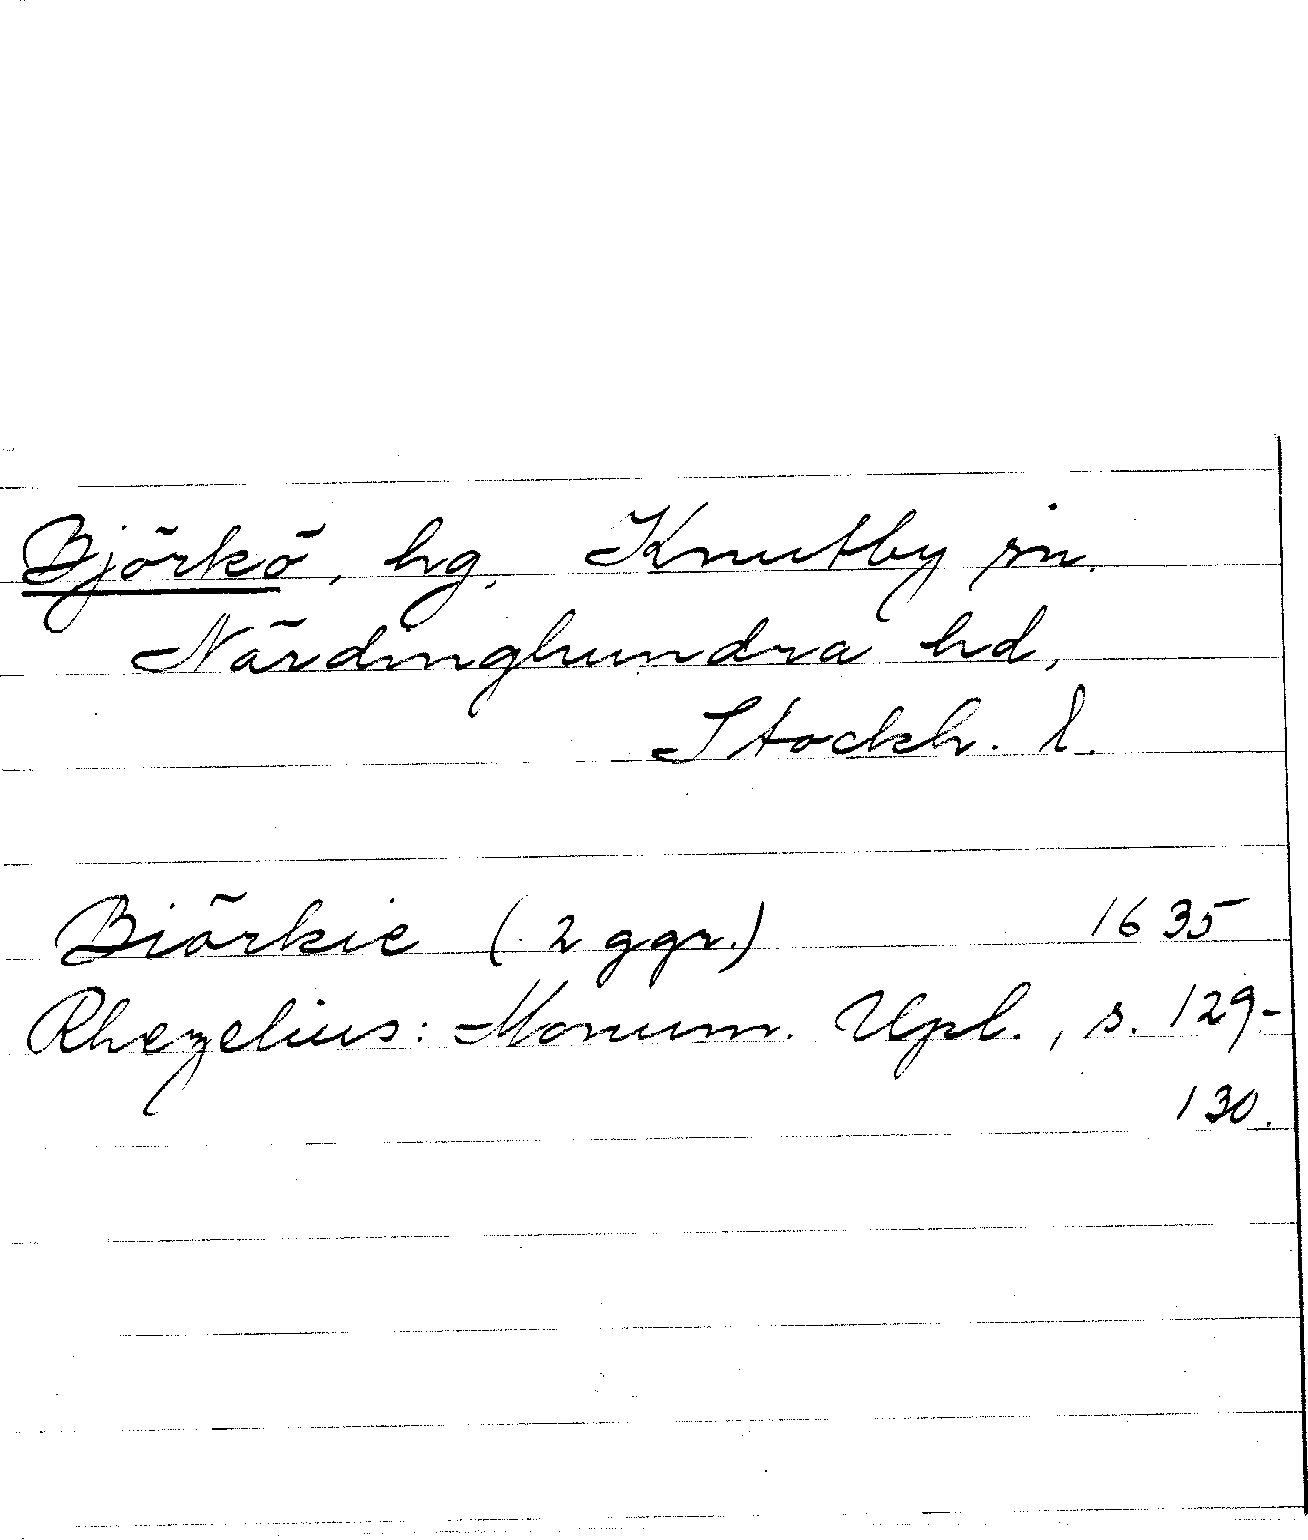 Björkö, hg, Knutby sn.
Närdinghundra hd,
Stockh. l.
Biörkie (2 ggr.) 1635
Rhezelius: Monum. Upl., s. 129-
130.